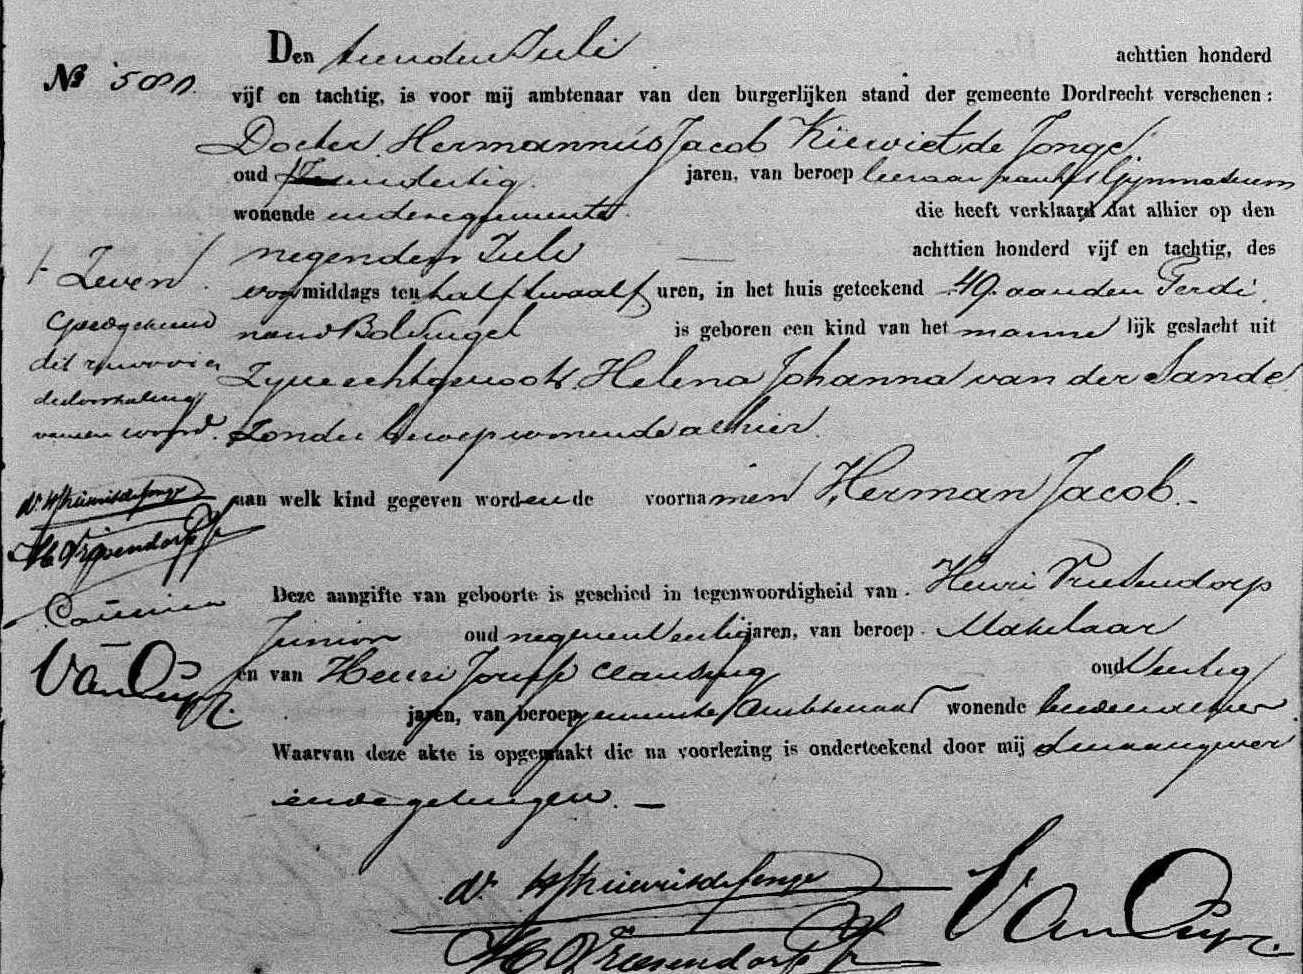 Den tienden Juli achttien honderd
No 580.
vijf en tachtig, is voor mij ambtenaar van den burgerlijken stand der gemeente Dordrecht verschenen:
Docter Hermannus Jacob Kiewiet de Jonge
oud en dertig jaren, van beroep leeraar aan het Gijmnasium
wonende in deze gemeente die heeft verklaard dat alhier op den
negenden Juli achttien honderd vijf en tachtig, des
voormiddags ten half twaalf uren, in het huis geteekend 49. aan den Ferdi
nand Bolsingel is geboren een kind van het mannelijk geslacht uit
Zijne echtgenoote Helena Johanna van der Sande
Zonder beroep wonende alhier.
aan welk kind gegeven worden de voornamen Herman Jacob.
Deze aangifte van geboorte is geschied in tegenwoordigheid van Henri Vriesendorp
Junior oud negenentwintig jaren, van beroep Makelaar
en van Henri Josef Clausing oud dertig
jaren, van beroep gemeente Ambtenaar wonende beiden alhier.
Waarvan deze akte is opgemaakt die na voorlezing is onderteekend door mij den aangever
en de getuigen.
+ Zeven
Goedgekeurd
dit renvooi en
de doorhaling
van een woord.
Dr. HJ Kiewiet de Jonge
H Vriesendorp Jr
Van
Dr. HJ Kiewiet de Jonge
H Vriesendorp Jr
Van